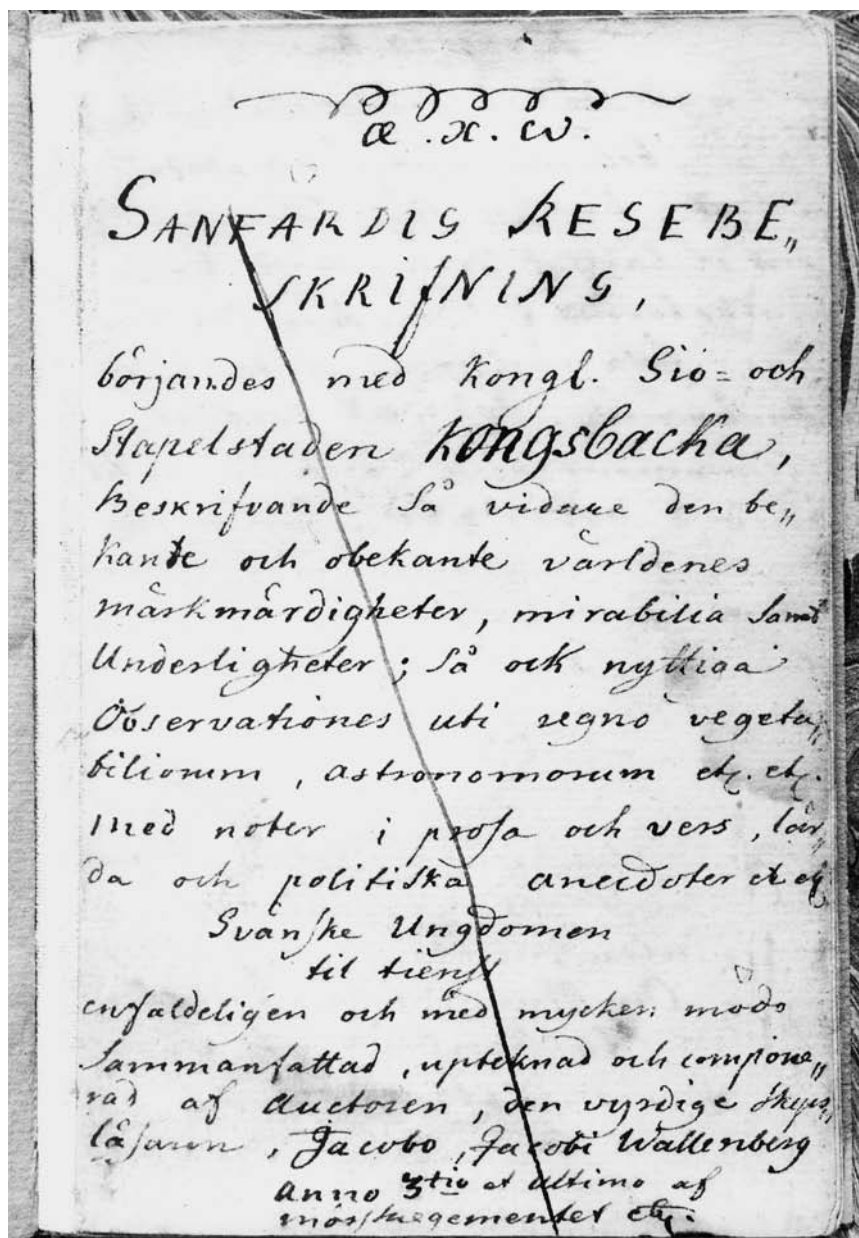 æ . x . w .
SANFÄRDIG RESEBE„
SKRIfNING,
börjandes med Kongl. Siö= och
Stapelstaden Kongsbacka,
Beskrifvande så vidare den be„
kante och obekante världenes
märkmärdigheter, mirabilia samt
Underligheter ; så ock nyttiga
Observationes uti regno vegeta„
biliorum , astronomorum etc. etc.
med noter i prosa och vers , lär„
da och politiska anecdoter et etc
Svänske Ungdomen
til tienst
enfaldeligen och med mycken mödo
sammanfattad , upteknad och compone„
rad af auctoren , den vyrdige skeps„
läsaren , Jacobo , Jacobi Wallenberg
anno 3tio et ultimo af
mössregementet etc.